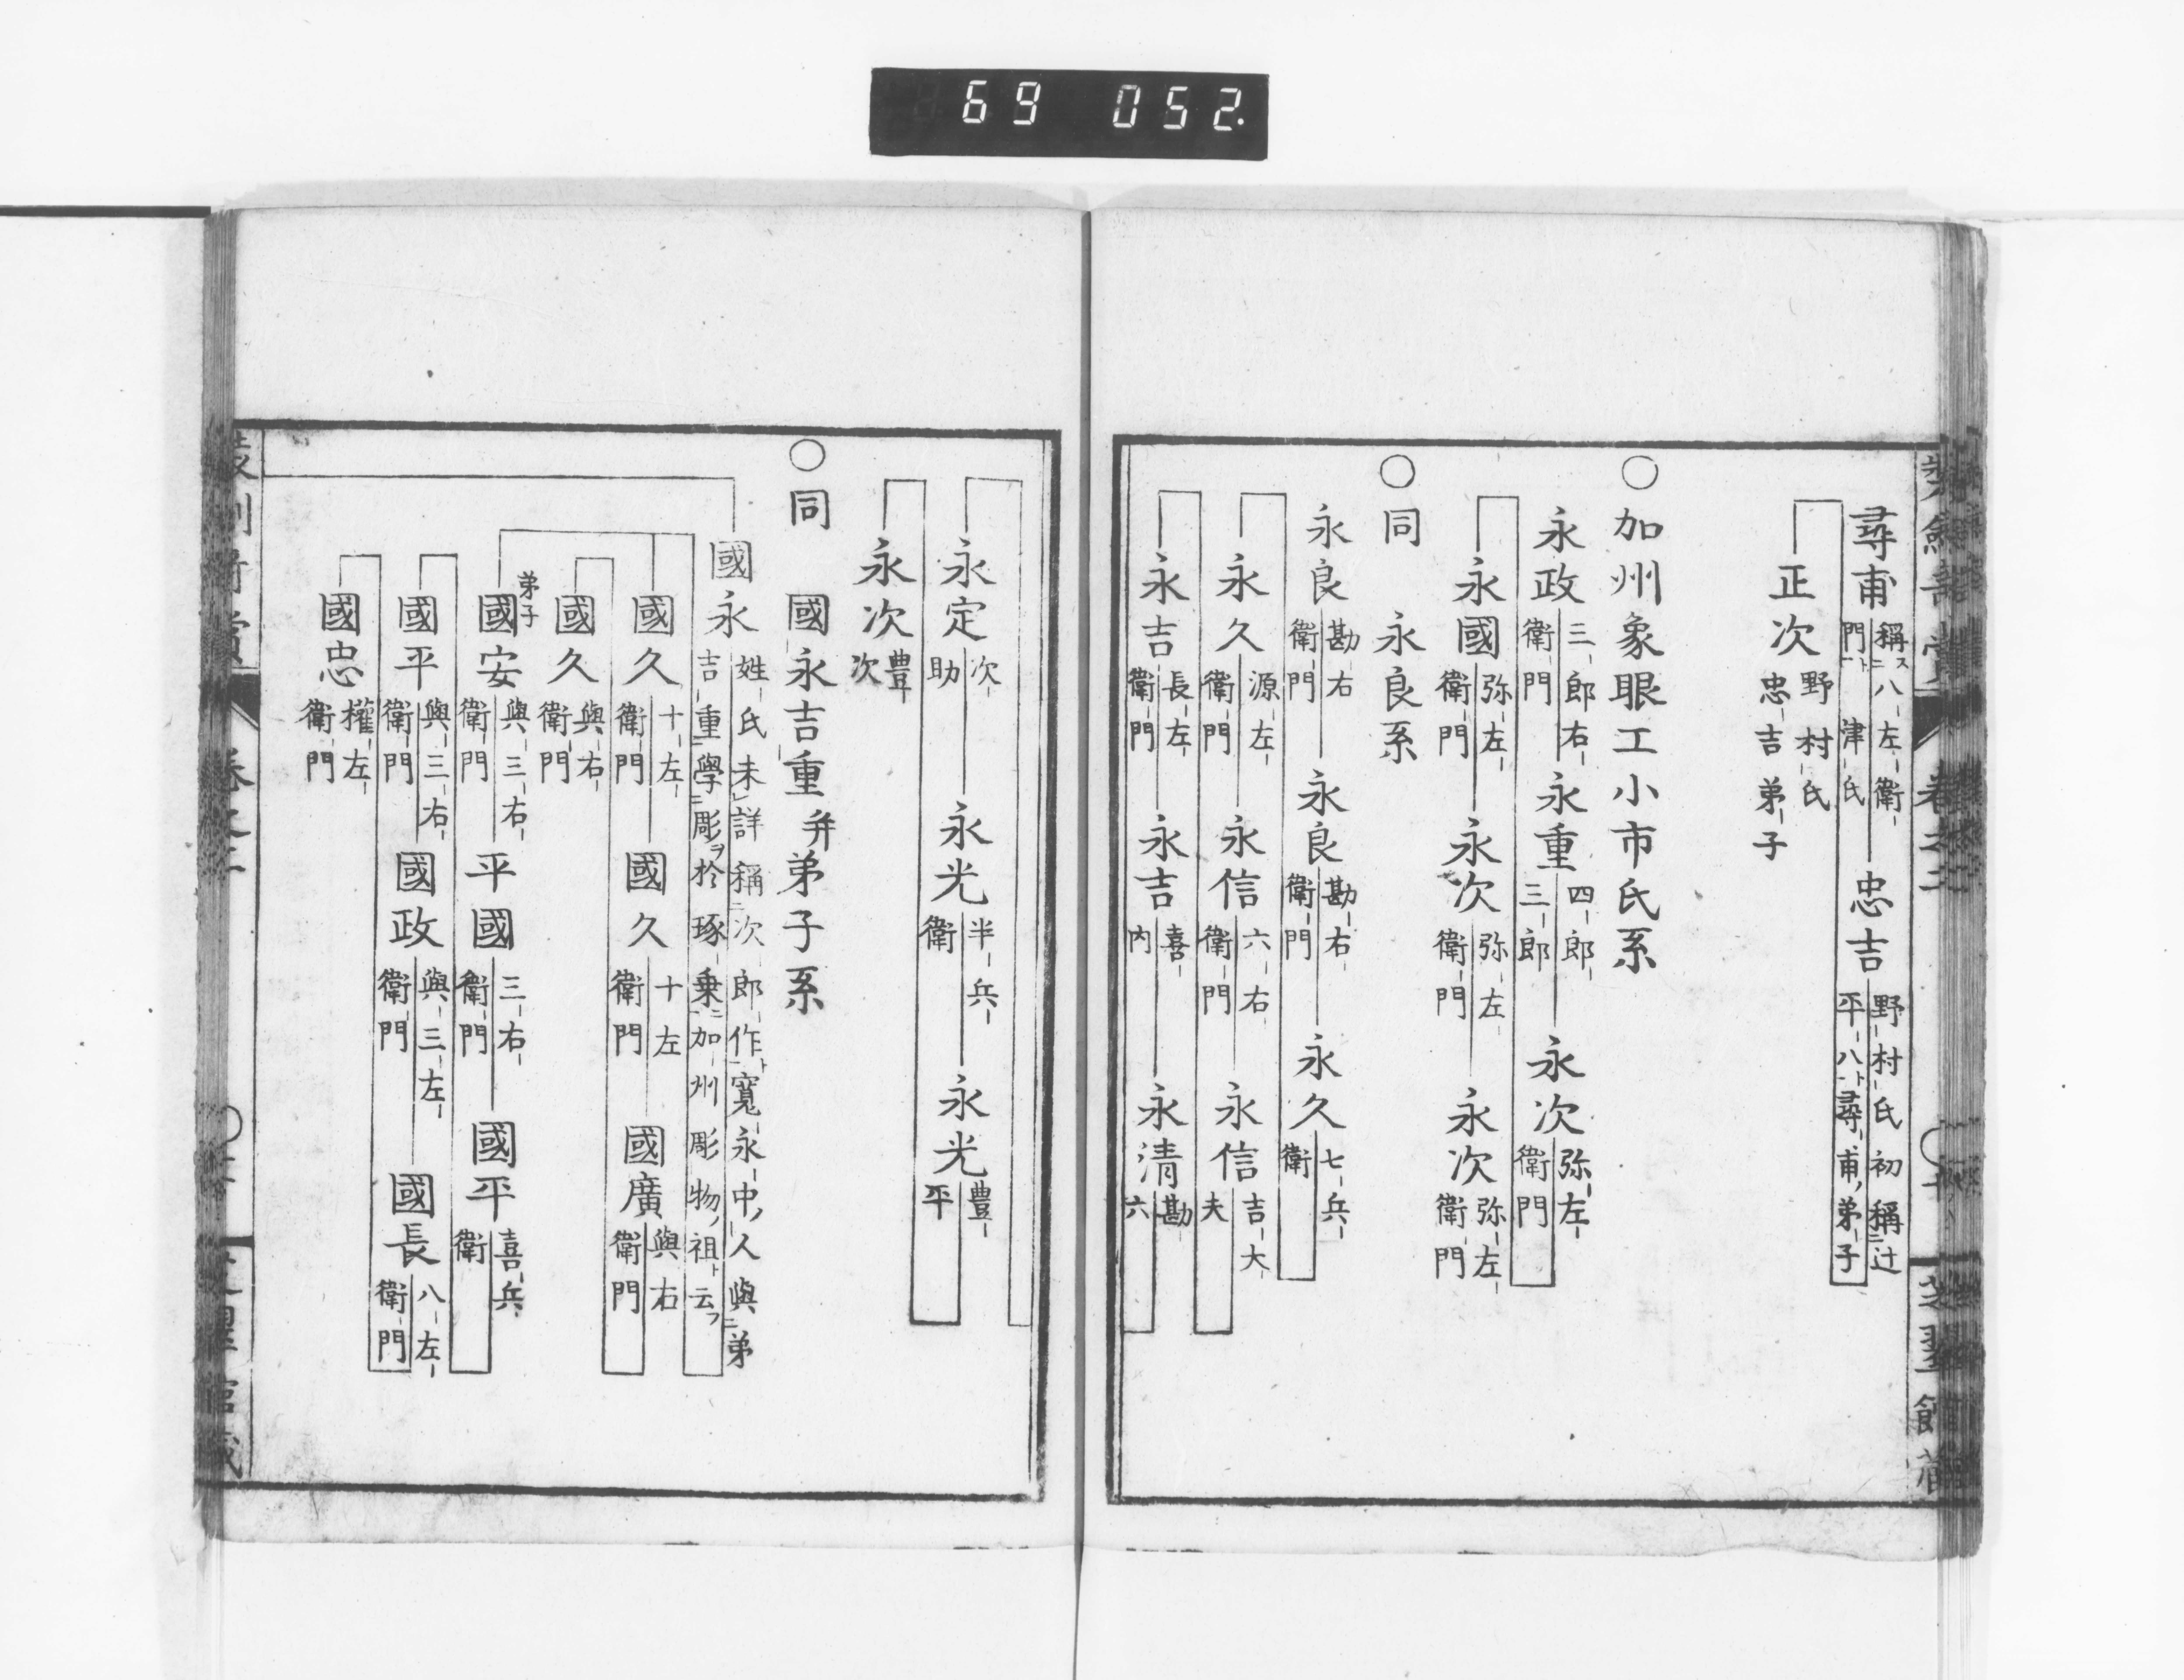 69 052.
尋甫 稱ス八左衛門ト 津氏
忠吉 野村氏初稱辻平八ト尋甫ノ弟子
正次 野村氏 忠吉弟子
○加州象眼工小市氏系
永政 三郎右衛門
永重 四郎三郎
永次 弥左衛門
永國 弥左衛門
永次 弥左衛門
永次 弥左衛門
○同 永良系
永良 勘右衛門
永良 勘右衛門
永久 七兵衛
永久 源左衛門
永信 六右衛門
永信 吉大夫
永吉 長左衛門
永吉 喜内
永清 勘六
永定 次助
永光 半兵衛
永光 豊平
永次 豊次
○同 國永吉重并弟子系
國永 姓氏未詳稱次郎作ト寛永中ノ人與弟
吉重學彫ヲ於琢乗ニ加州彫物ノ祖ト云フ
國久 十左衛門
國久 十左衛門
國廣 與右衛門
國久 與右衛門
弟子
國安 與三右衛門
平國 三右衛門
國平 喜兵衛
國平 與三右衛門
國政 與三左衛門
國長 八左衛門
國忠 權左衛門